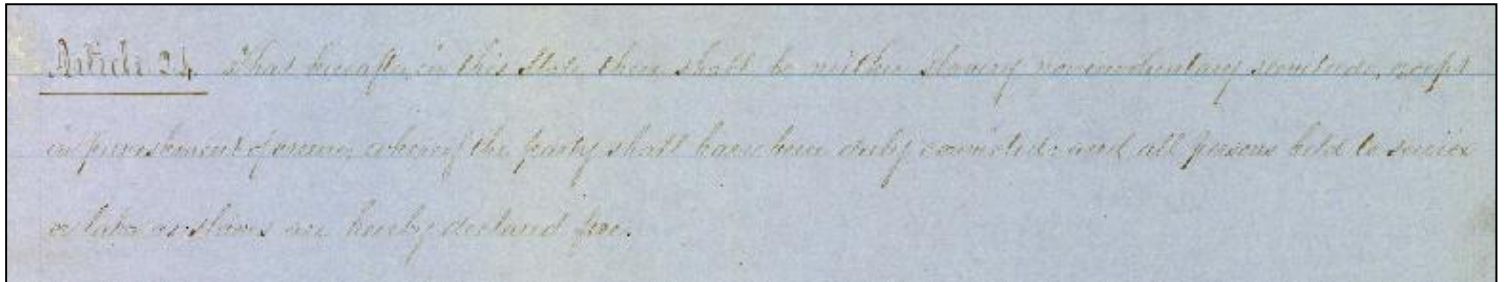 Article 24. That hereafter, in this State there shall be neither slavery nor involuntary servitude, except
in punishment of crime, whereof the party shall have been duly convicted: and all persons held to service
or labor as slaves are hereby declared free.